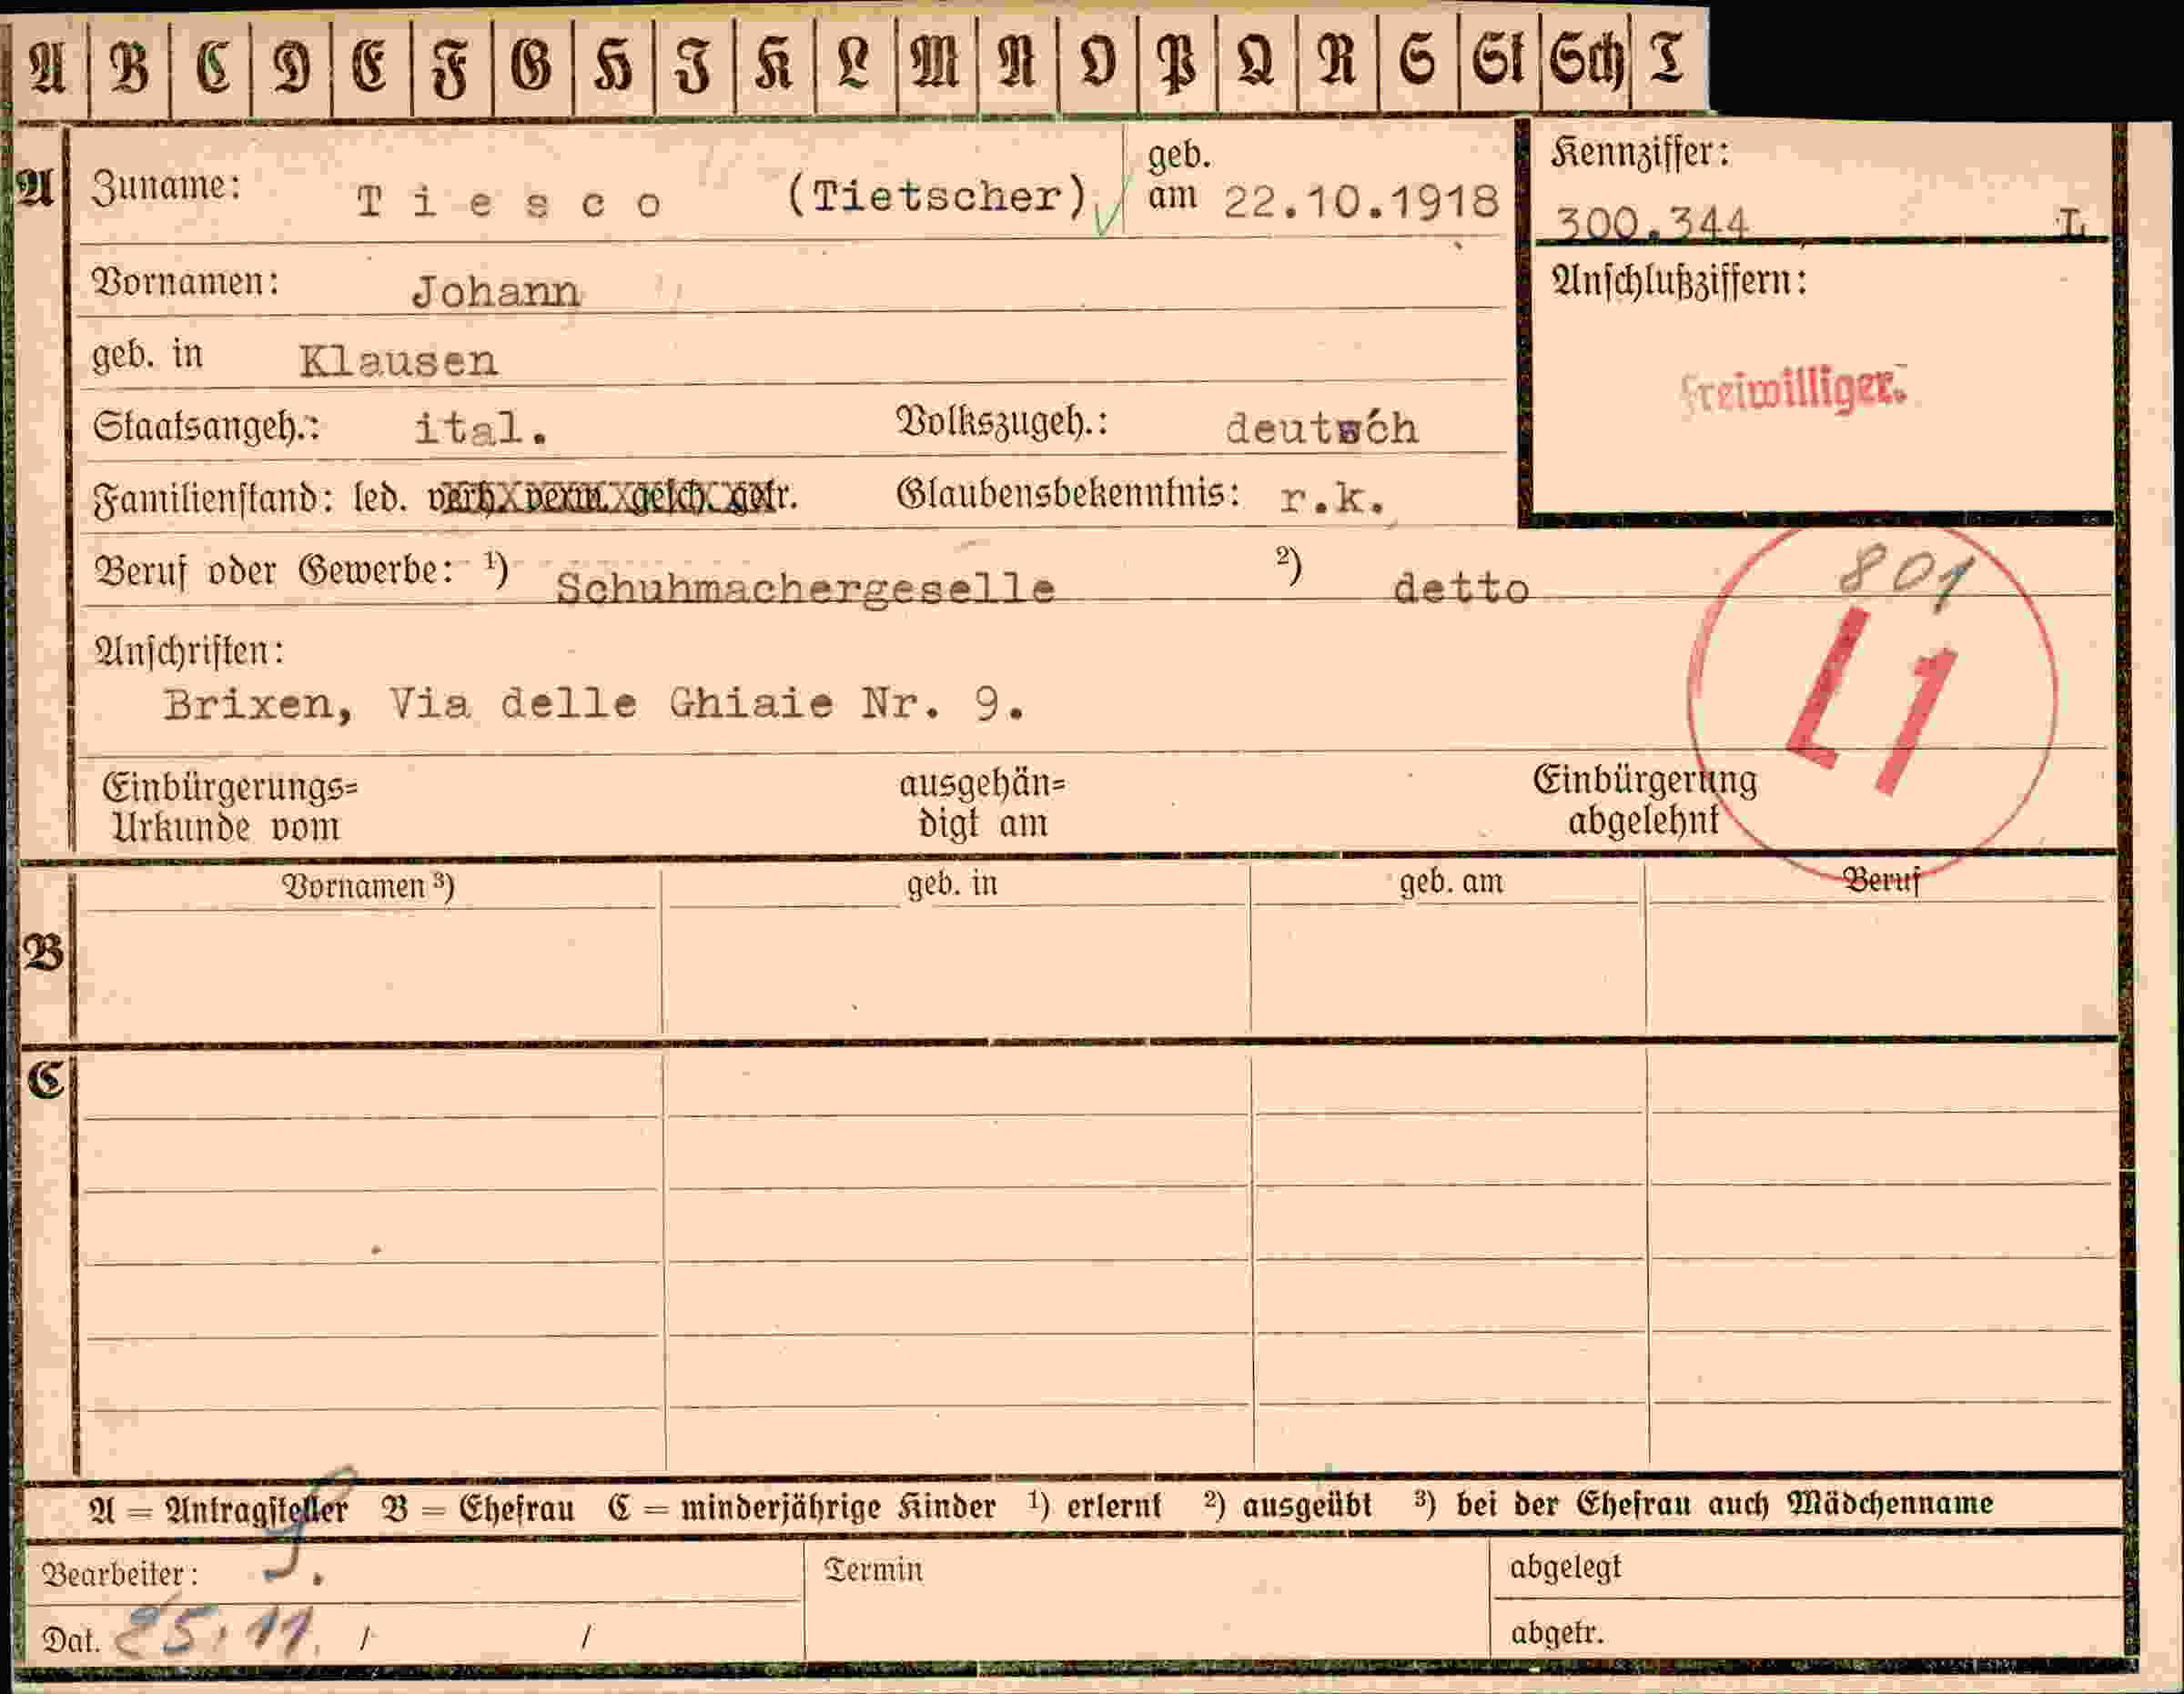 A B C D E F G H J K L M N O P Q R S St Sch T
A Zuname: Tiesco (Tietscher) geb. am 22.10.1918
Kennziffer:
300.344 L
Vornamen: Johann
Anschlußziffern:
geb. in Klausen
Freiwilliger.
Staatsangeh.: ital. Volkszugeh.: deutsch
Familienstand: led. verh. verw. gesch. getr. Glaubensbekenntnis: r.k.
Beruf oder Gewerbe: ¹) Schuhmachergeselle ²) detto
801
L1
Anschriften:
Brixen, Via delle Ghiaie Nr. 9.
Einbürgerungs= ausgehän= Einbürgerung
Urkunde vom digt am abgelehnt
Vornamen ³) geb. in geb. am Beruf
B
C
A = Antragsteller B = Ehefrau C = minderjährige Kinder ¹) erlernt ²) ausgeübt ³) bei der Ehefrau auch Mädchenname
Bearbeiter: Termin abgelegt
Dat. 25.11. / / abgetr.